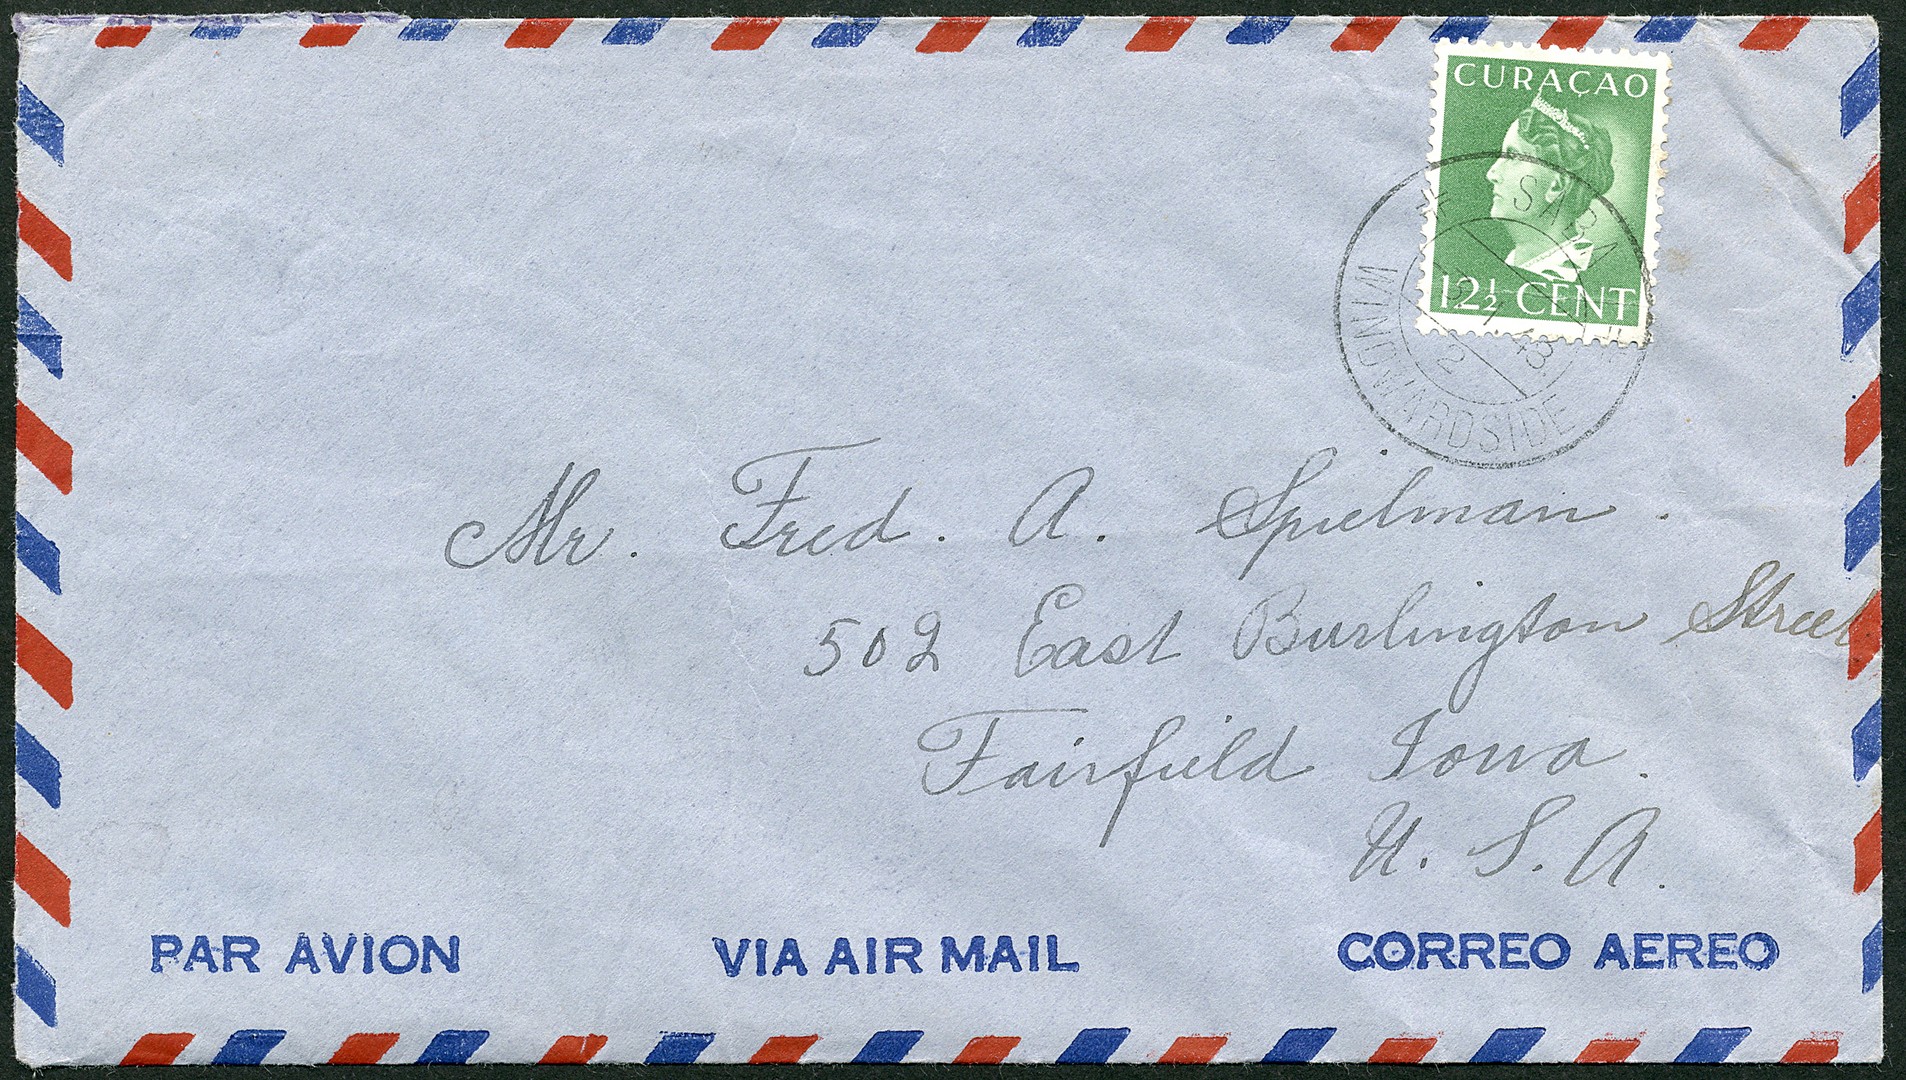 CURAÇAO
12½ CENT
SABA
WINDWARDSIDE
Mr. Fred. A. Spielman.
502 East Burlington Street
Fairfield Iowa.
U. S. A.
PAR AVION VIA AIR MAIL CORREO AEREO